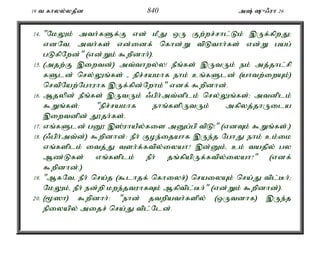 19 வ காலல்லதீன 840 அஷ் ஷுஃரா 26
14. "மேலும் அவர்களுக்கு என் மீது ஒரு குற்றச்சாட்டும் இருக்கிறது;
எனவே, அவர்கள் என்னைக் கொன்று விடுவார்கள் என்று பயப்
படுகிறேன்" (என்றும் கூறினார்).
15. (அதற்கு இறைவன்) அவ்வாறல்ல! நீங்கள் இருவரும் நம் அத்தாட்சி
களுடன் செல்லுங்கள் , நிச்சயமாக நாம் உங்களுடன் (யாவற்றையும்)
செவியேற்போராக இருக்கின்றோம்" எனக் கூறினான்.
16. ஆதலின் நீங்கள் இருவரும் ஃபிர்அவ்னிடம் செல்லுங்கள்; அவனிடம்
கூறுங்கள்: "நிச்சயமாக நாங்களிருவரும் அகிலத்தாருடைய
இறைவனின் தூதர்கள்.
17. எங்களுடன் பனூ இஸ்ராயீல்களை அனுப்பி விடு!" (எனவும் கூறுங்கள்.)
18. (ஃபிர்அவ்ன்) கூறினான்: நீர் குழந்தையாக இருந்த போது நாம் உம்மை
எங்களிடம் வைத்து வளர்க்கவில்லையா? இன்னும், உம் வயதில் பல
ஆண்டுகள் எங்களிடம் நீர் தங்கியிருக்கவில்லையா?" (எனக்
கூறினான்.)
19. "ஆகவே, நீர் செய்த (கூடாதக் கொலைச்) செயலையும் செய்து விட்டீர்;
மேலும், நீர் நன்றி மறந்தவராகவும் ஆகிவிட்டீர்" (என்றும் கூறினான்).
20. (மூஸா) கூறினார்: "நான் தவறியவர்களில் (ஒருவனாக) இருந்த
நிலையில் அதைச் செய்து விட்டேன்.